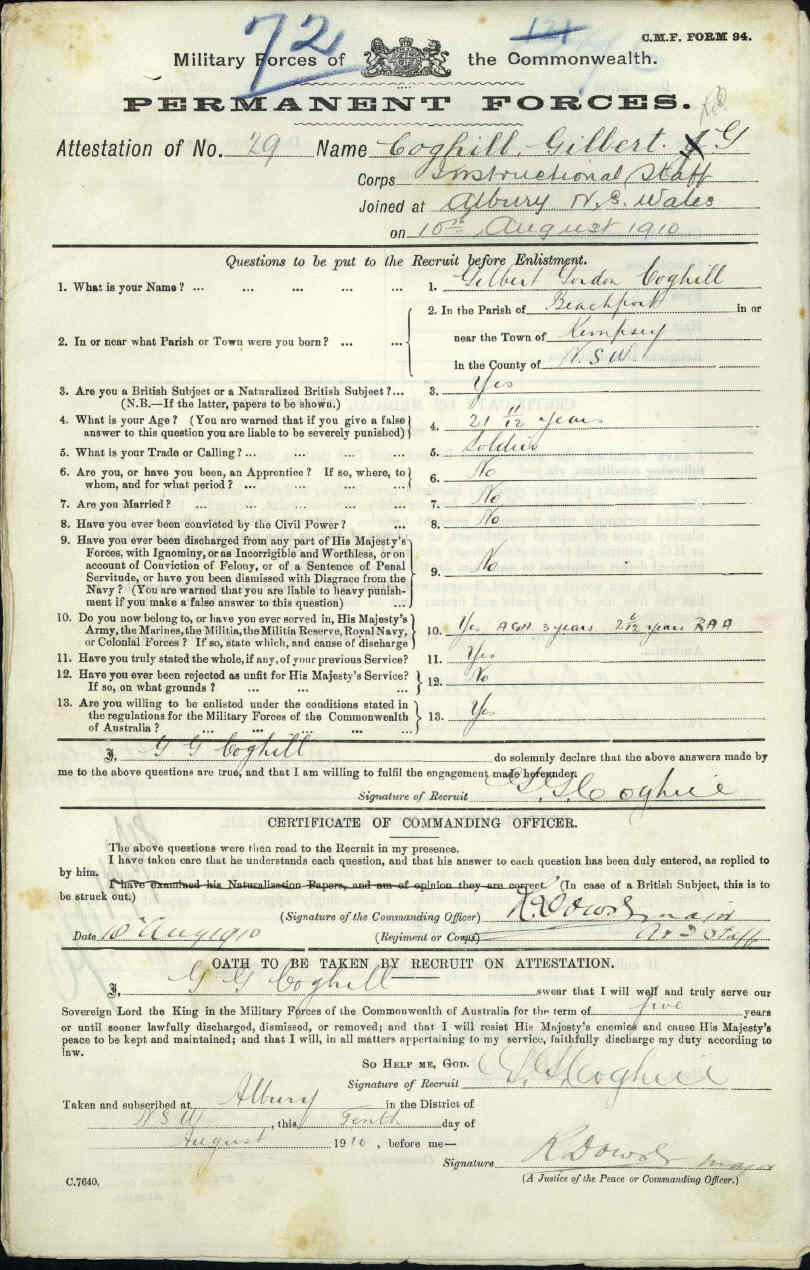 72
121
C.M.F. FORM 94.
Military Forces of the Commonwealth.
PERMANENT FORCES.
Attestation of No. 29 Name Coghill, Gilbert. G
Corps Instructional Staff
Joined at Albury N.S. Wales
on 10th August 1910
Questions to be put to the Recruit before Enlistment.
1. What is your Name? ... ... ... ... ... 1. Gilbert Gordon Coghill
2. In or near what Parish or Town were you born? ... ... 2. In the Parish of Beachport in or
near the Town of Kempsey
in the County of N.S.W.
3. Are you a British Subject or a Naturalized British Subject?... 3. Yes
(N.B.—If the latter, papers to be shown.)
4. What is your Age? (You are warned that if you give a false
answer to this question you are liable to be severely punished) 4. 21 11/12 years
5. What is your Trade or Calling?... ... ... ... 5. Soldier
6. Are you, or have you been, an Apprentice? If so, where, to
whom, and for what period? ... ... ... ... 6. No
7. Are you Married? ... ... ... ... ... 7. No
8. Have you ever been convicted by the Civil Power? ... 8. No
9. Have you ever been discharged from any part of His Majesty's
Forces, with Ignominy, or as Incorrigible and Worthless, or on
account of Conviction of Felony, or of a Sentence of Penal
Servitude, or have you been dismissed with Disgrace from the
Navy? (You are warned that you are liable to heavy punish-
ment if you make a false answer to this question) ... 9. No
10. Do you now belong to, or have you ever served in, His Majesty's
Army, the Marines, the Militia, the Militia Reserve, Royal Navy,
or Colonial Forces? If so, state which, and cause of discharge 10. Yes 3 years 2 6/12 years RAA
11. Have you truly stated the whole, if any, of your previous Service? 11. Yes
12. Have you ever been rejected as unfit for His Majesty's Service?
If so, on what grounds? ... ... ... 12. No
13. Are you willing to be enlisted under the conditions stated in
the regulations for the Military Forces of the Commonwealth
of Australia? ... ... ... ... ... 13. Yes
I, G G Coghill do solemnly declare that the above answers made by
me to the above questions are true, and that I am willing to fulfil the engagement made hereunder.
Signature of Recruit G. G. Coghill
CERTIFICATE OF COMMANDING OFFICER.
The above questions were then read to the Recruit in my presence.
I have taken care that he understands each question, and that his answer to each question has been duly entered, as replied to
by him.
I have examined his Naturalisation Papers, and am of opinion they are correct. (In case of a British Subject, this is to
be struck out.)
(Signature of the Commanding Officer) major
Date 10th Aug 1910 (Regiment or Corps) Staff
OATH TO BE TAKEN BY RECRUIT ON ATTESTATION.
I, G G Coghill swear that I will well and truly serve our
Sovereign Lord the King in the Military Forces of the Commonwealth of Australia for the term of five years
or until sooner lawfully discharged, dismissed, or removed; and that I will resist His Majesty's enemies and cause His Majesty's
peace to be kept and maintained; and that I will, in all matters appertaining to my service, faithfully discharge my duty according to
law.
SO HELP ME, GOD.
Signature of Recruit G. G. Coghill
Taken and subscribed at Albury in the District of
N.S.W , this Tenth day of
August 1910, before me—
Signature major
(A Justice of the Peace or Commanding Officer.)
C.7640.